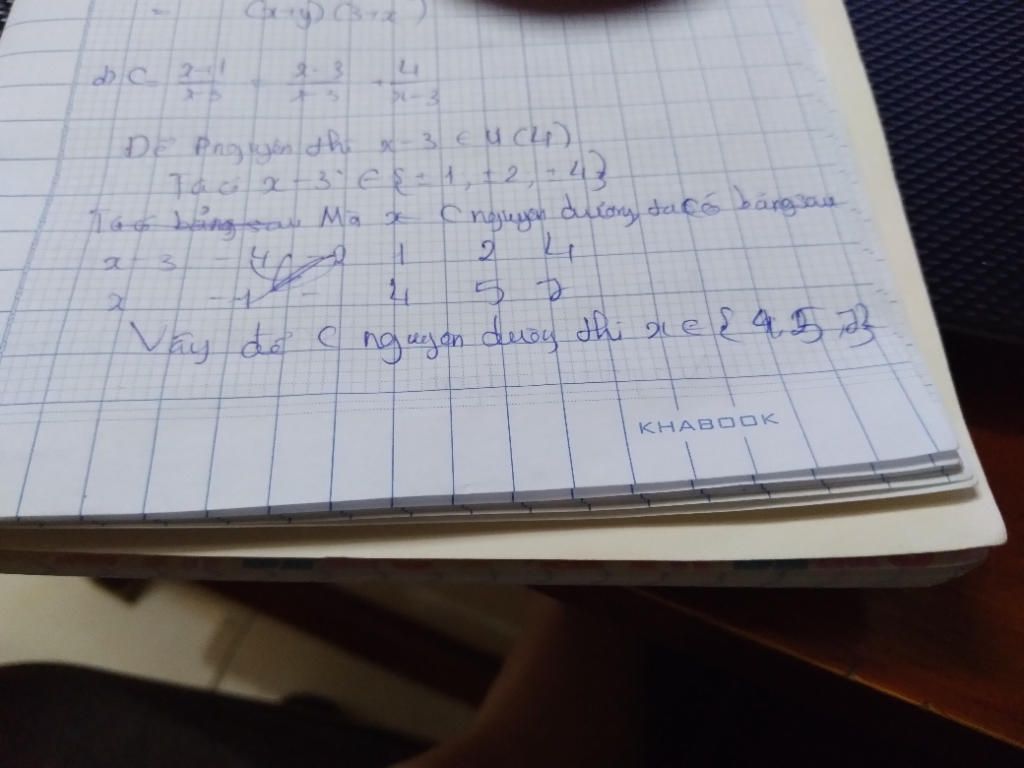 = (x+y)(3+x )
d) C = x+1/x-3 = x-3/x-3 + 4/x-3
Để P nguyên thì x-3 ∈ Ư(4)
Ta có x-3 ∈ {±1, ±2, ±4}
Ta có bảng sau Mà x C nguyên dương ta có bảng sau
x-3 -4 -2 1 2 4
x -1 - 4 5 7
Vậy để C nguyên dương thì x ∈ {4, 5, 7}
KHABOOK